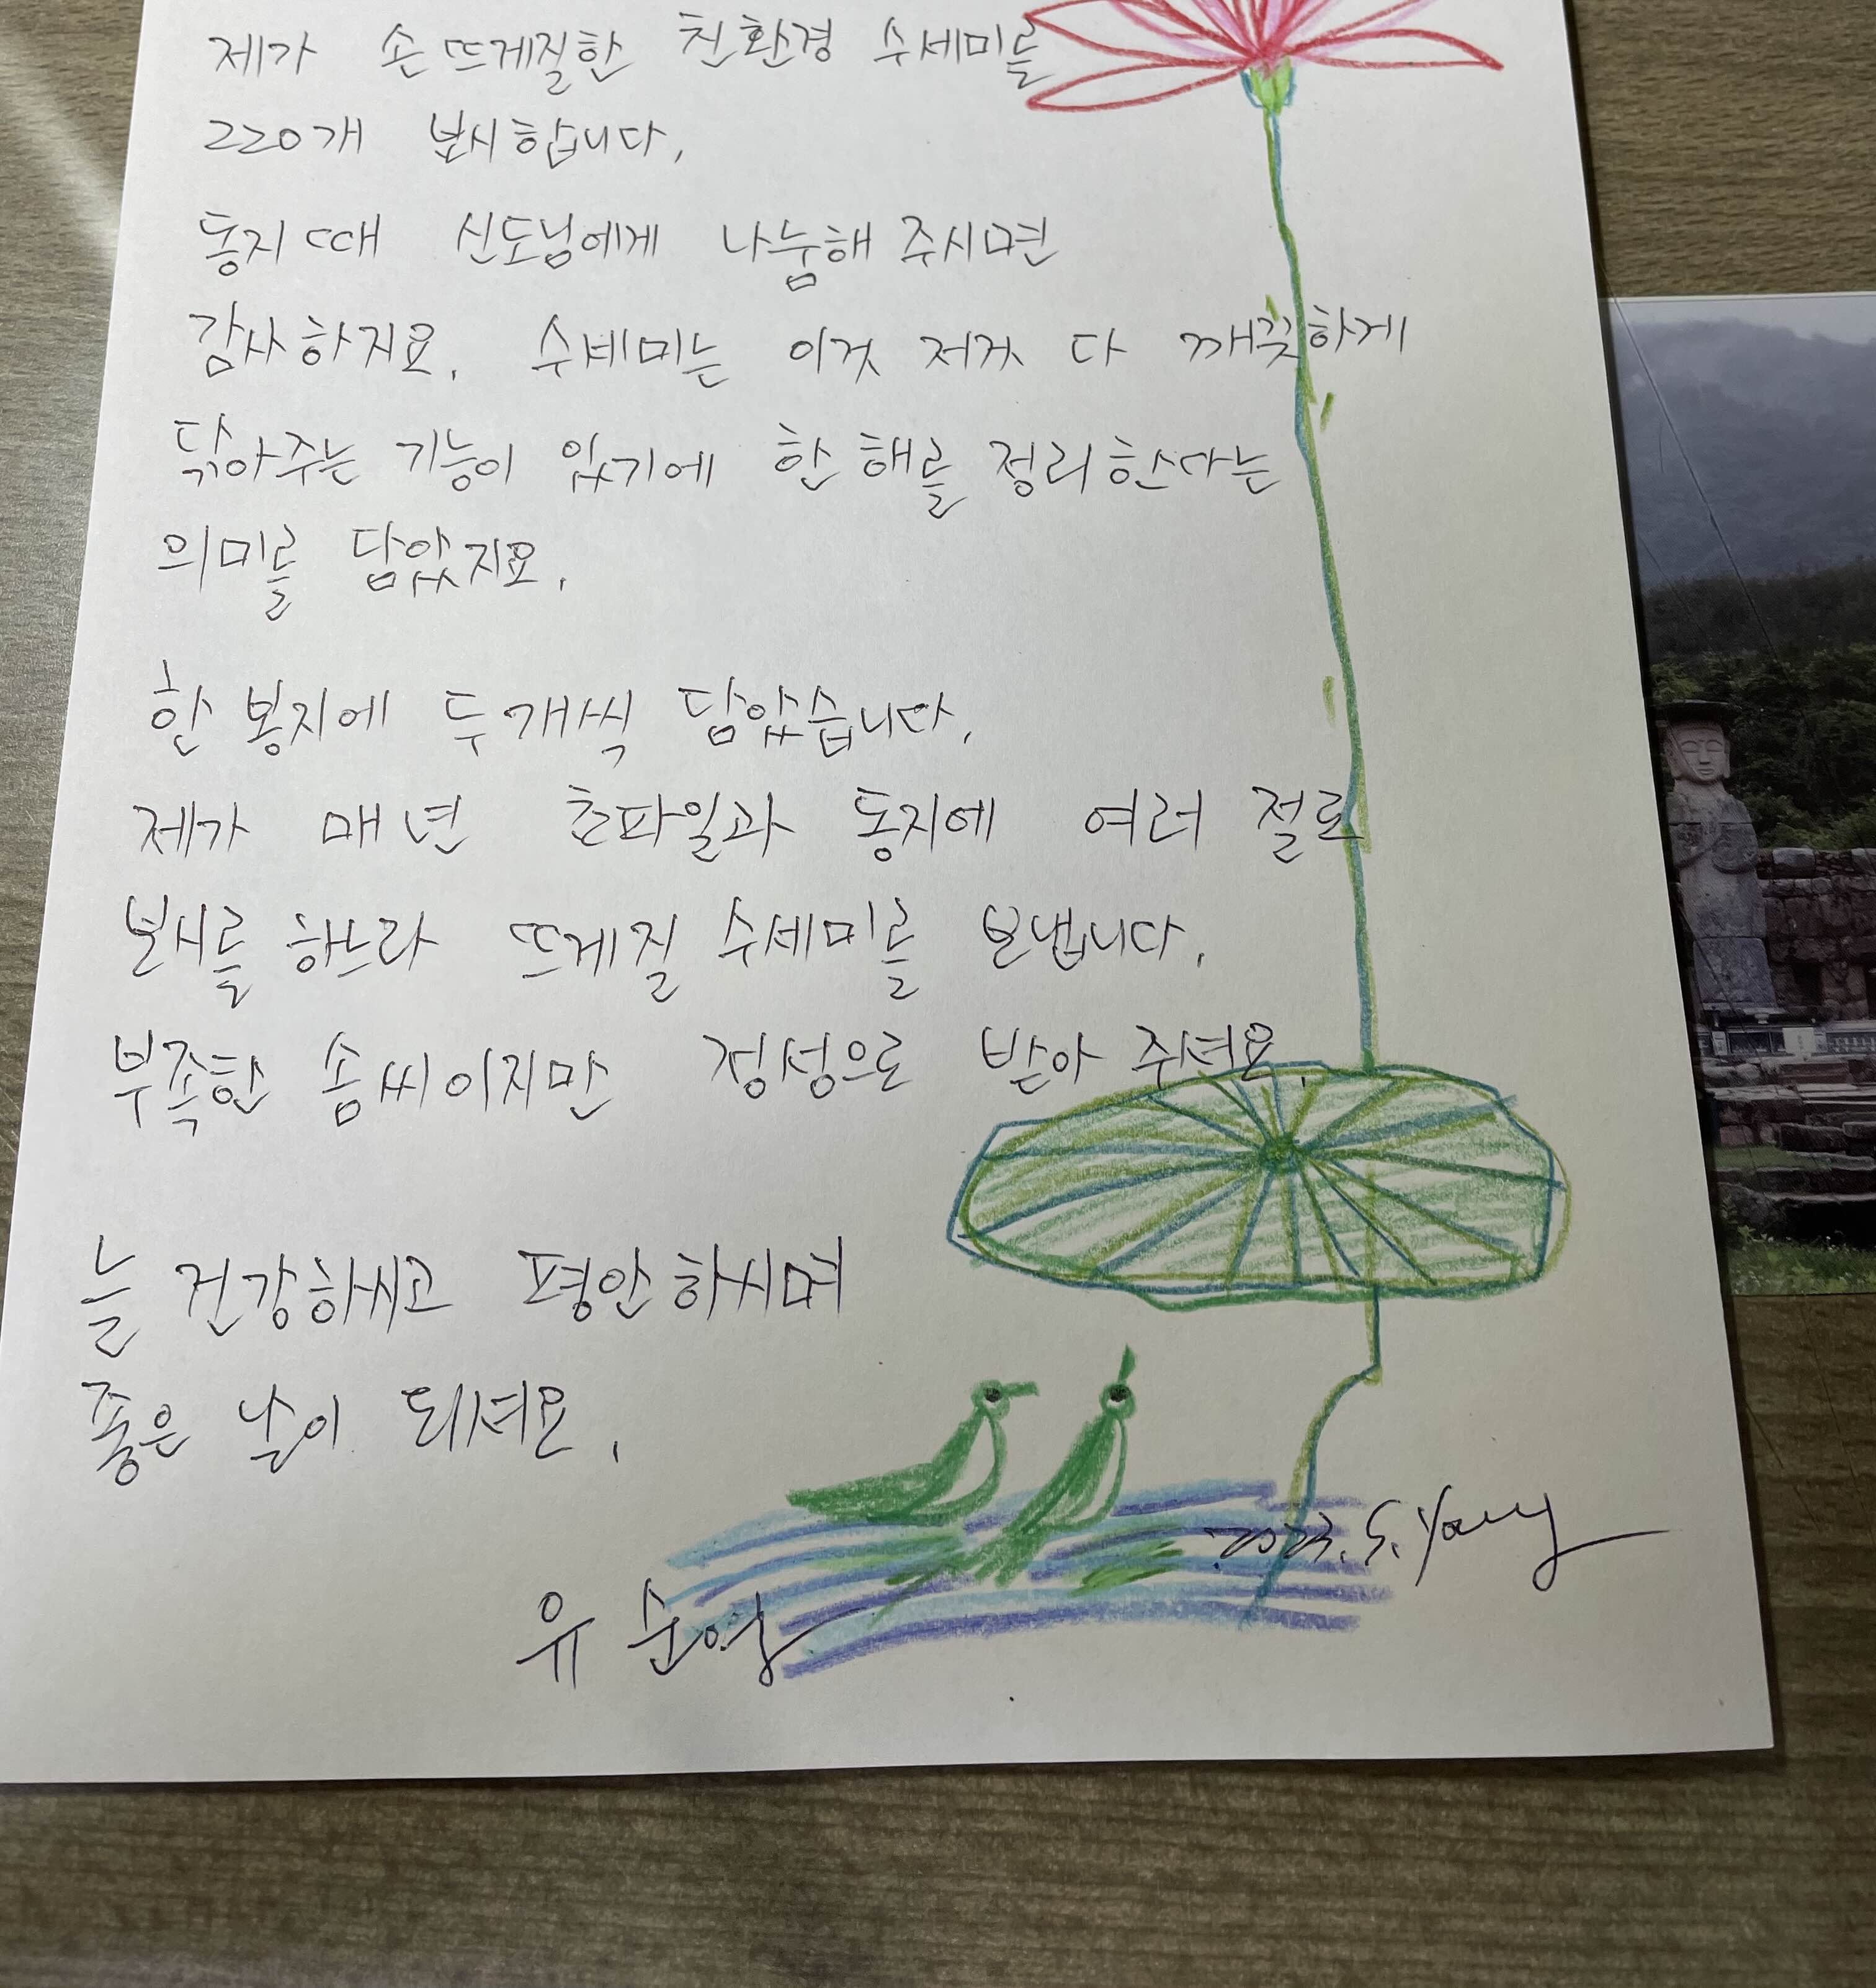 제가 손뜨게질한 친환경 수세미를
220개 보시합니다.
동지 때 신도님에게 나눔해 주시면
감사하지요. 수세미는 이것 저것 다 깨끗하게
닦아주는 기능이 있기에 한 해를 정리한다는
의미를 담았지요.
한 봉지에 두개씩 담았습니다.
제가 매년 초파일과 동지에 여러 절로
보시를 하느라 뜨게질 수세미를 보냅니다.
부족한 솜씨이지만 정성으로 받아 주셔요.
늘 건강하시고 평안하시며
좋은 날이 되셔요.
2023. S. Yang
유순양